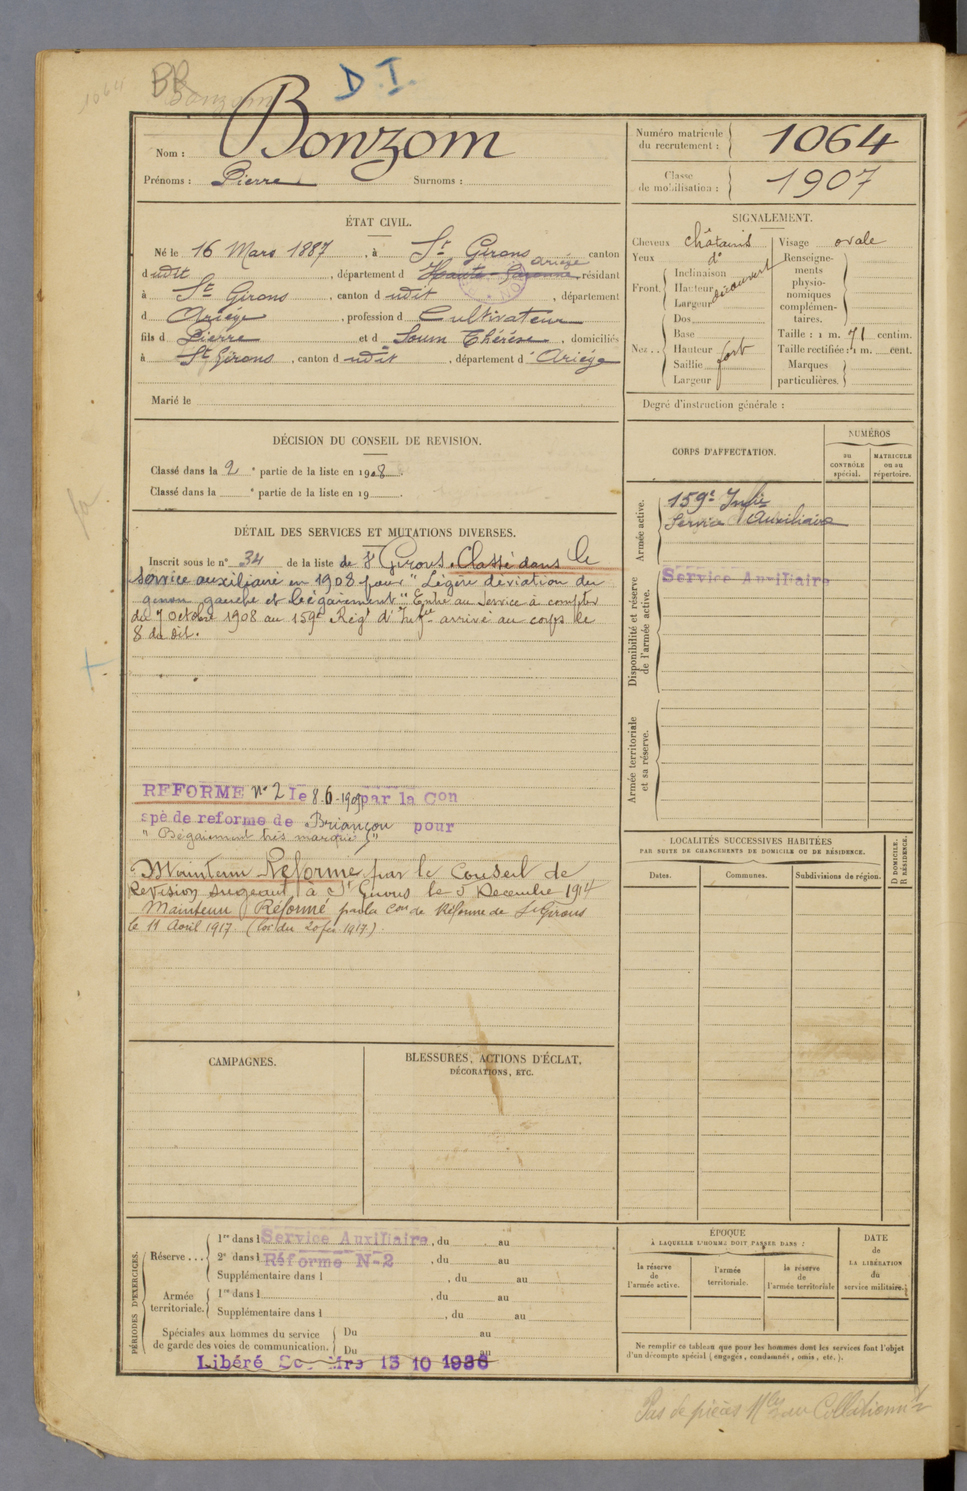 1064 BR Bonzom D.I.
Nom : Bonzom
Prénoms : Pierre Surnoms :
Numéro matricule du recrutement : 1064
Classe de mobilisation : 1907
ÉTAT CIVIL.
Né le 16 Mars 1887, à St Girons canton
dudit, département d Haute-Garonne Ariège, résidant
à St Girons, canton dudit, département
d Ariège, profession d Cultivateur
fils d Pierre et d Soum Thérèse, domiciliés
à St Girons, canton dudit, département d'Ariège
Marié le
SIGNALEMENT.
Cheveux châtains
Yeux do
Front. Inclinaison
Hauteur
Largeur
découvert
Nez .. Dos
Base
Hauteur fort
Saillie
Largeur
Visage ovale
Renseigne-
ments
physio-
nomiques
complémen-
taires.
Taille : 1 m. 71 centim.
Taille rectifiée : 1 m. cent.
Marques
particulières.
Degré d'instruction générale :
DÉCISION DU CONSEIL DE REVISION.
Classé dans la 2e partie de la liste en 1908.
Classé dans la e partie de la liste en 19
DÉTAIL DES SERVICES ET MUTATIONS DIVERSES.
Inscrit sous le n° 34 de la liste de St Girons. Classé dans le
Service auxiliaire en 1908 pour "Légère déviation du
genou gauche et bégaiement" Entré au Service à compter
du 7 Octobre 1908 au 159e Régt d'Infie arrivé au corps le
8 du dit.
REFORME N° 2 le 8-6-1909 par la Con
spé de reforme de Briançon pour
"Bégaiement très marqué"
Maintenu Réformé par le Conseil de
Revision siégeant à St Girons le 5 Décembre 1914
Maintenu Réformé par la Con de Réforme de St Girons
le 11 Avril 1917. (loi du 20 fév 1917).
CORPS D'AFFECTATION.
NUMÉROS
au CONTRÔLE spécial.
MATRICULE ou au répertoire.
Armée active.
159e Infie
Service Auxiliaire
Disponibilité et réserve de l'armée active.
Service Auxiliaire
Armée territoriale et sa réserve.
LOCALITÉS SUCCESSIVES HABITÉES
PAR SUITE DE CHANGEMENTS DE DOMICILE OU DE RÉSIDENCE.
Dates. Communes. Subdivisions de région.
D DOMICILE.
R RÉSIDENCE.
CAMPAGNES.
BLESSURES, ACTIONS D'ÉCLAT,
DÉCORATIONS, ETC.
PÉRIODES D'EXERCICES.
Réserve ... 1re dans l Service Auxiliaire, du au
2e dans l Réforme N-2, du au
Supplémentaire dans l , du au
Armée territoriale. 1re dans l , du au
Supplémentaire dans l , du au
Spéciales aux hommes du service
de garde des voies de communication. Du au
Du au
Libéré 13 10 1936
ÉPOQUE
À LAQUELLE L'HOMME DOIT PASSER DANS :
la réserve de l'armée active.
l'armée territoriale.
la réserve de l'armée territoriale
DATE
de
LA LIBÉRATION
du
service militaire.
Ne remplir ce tableau que pour les hommes dont les services font l'objet
d'un décompte spécial (engagés, condamnés, omis, etc.).
Pas de pièces